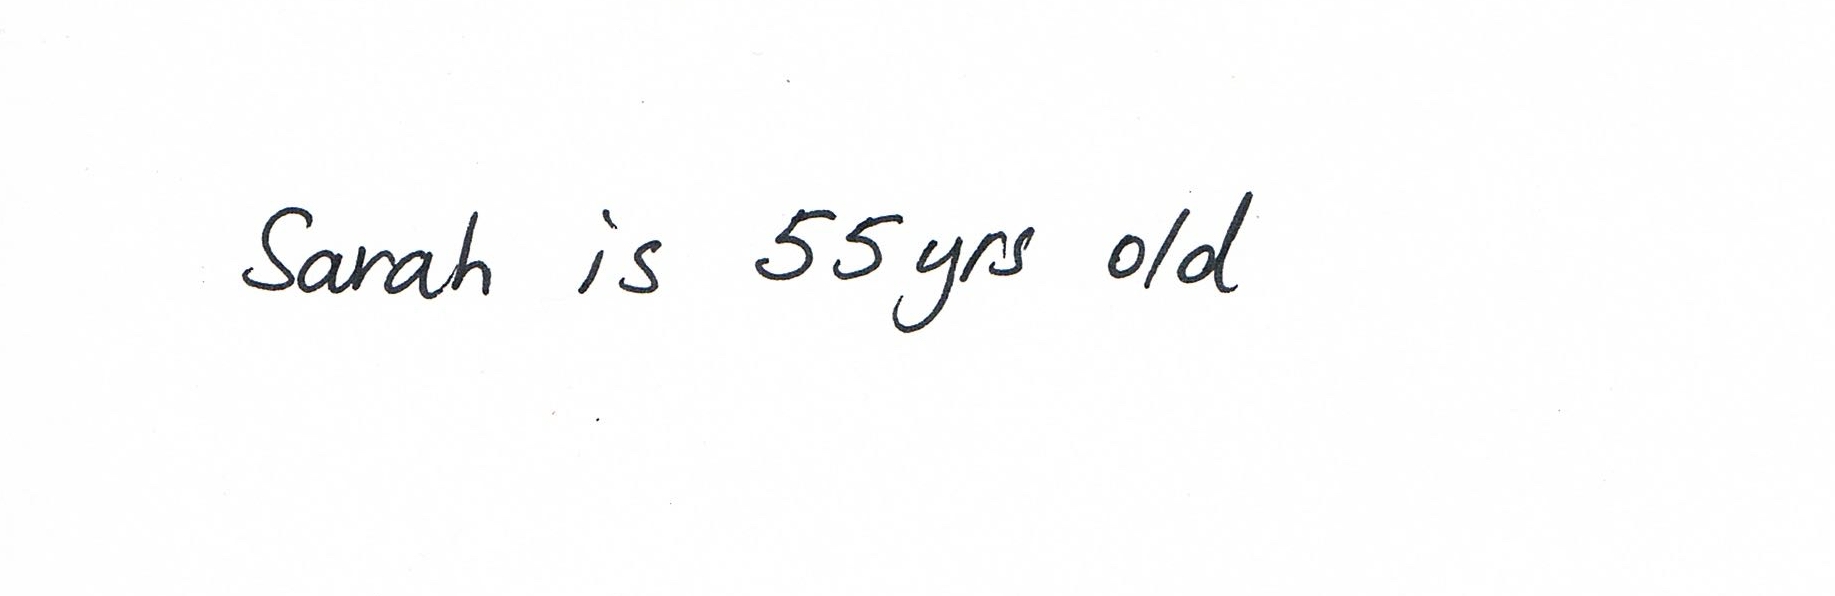 Sarah is 55yrs old